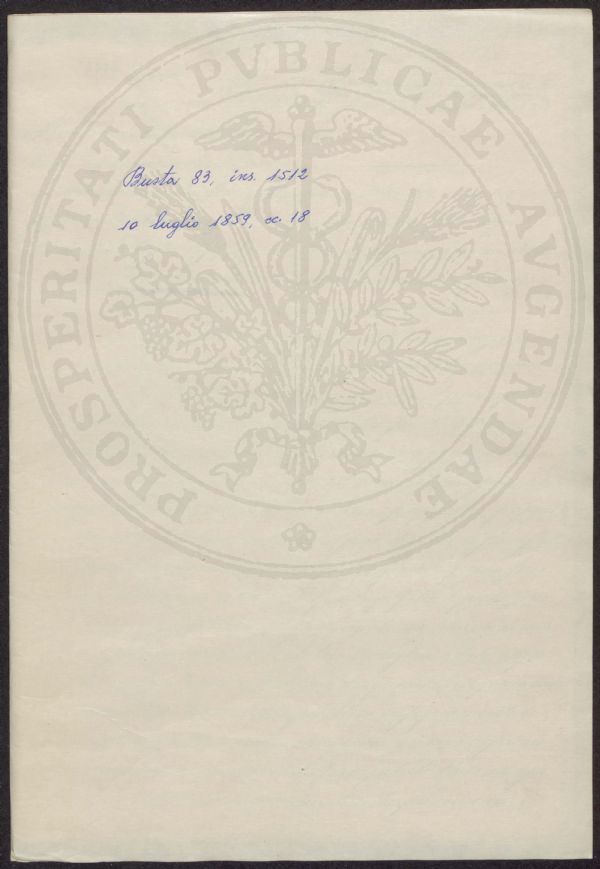 PROSPERITATI PVBLICAE AVGENDAE
Busta 83, ins. 1512
10 luglio 1859, cc. 18